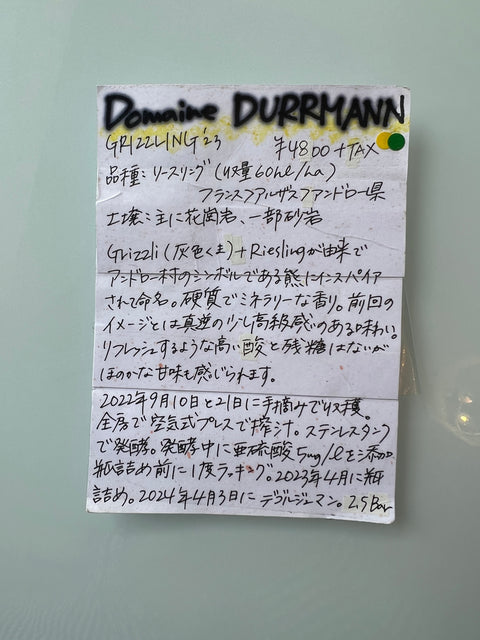 Domaine DURRMANN
GRIZZLING '23 ¥4800+TAX
品種:リースリング(収量60hl/ha)
フランスアルザスアンドロー県
土壌:主に花崗岩、一部砂岩
Grizzli(灰色くま)+Rieslingが由来で
アンドロー村のシンボルである熊にインスパイア
されて命名。硬質でミネラリーな香り。前回の
イメージとは真逆の少し高級感のある味わい。
リフレッシュするような高い酸と残糖はないが
ほのかな甘味も感じられます。
2022年9月10日と21日に手摘みで収穫。
全房で空気式プレスで搾汁。ステンレスタンク
で発酵。発酵中に亜硫酸5mg/lを添加
瓶詰め前に1度ラッキング。2023年4月に瓶
詰め。2024年4月3日にデゴルジュマン。2.5Bar